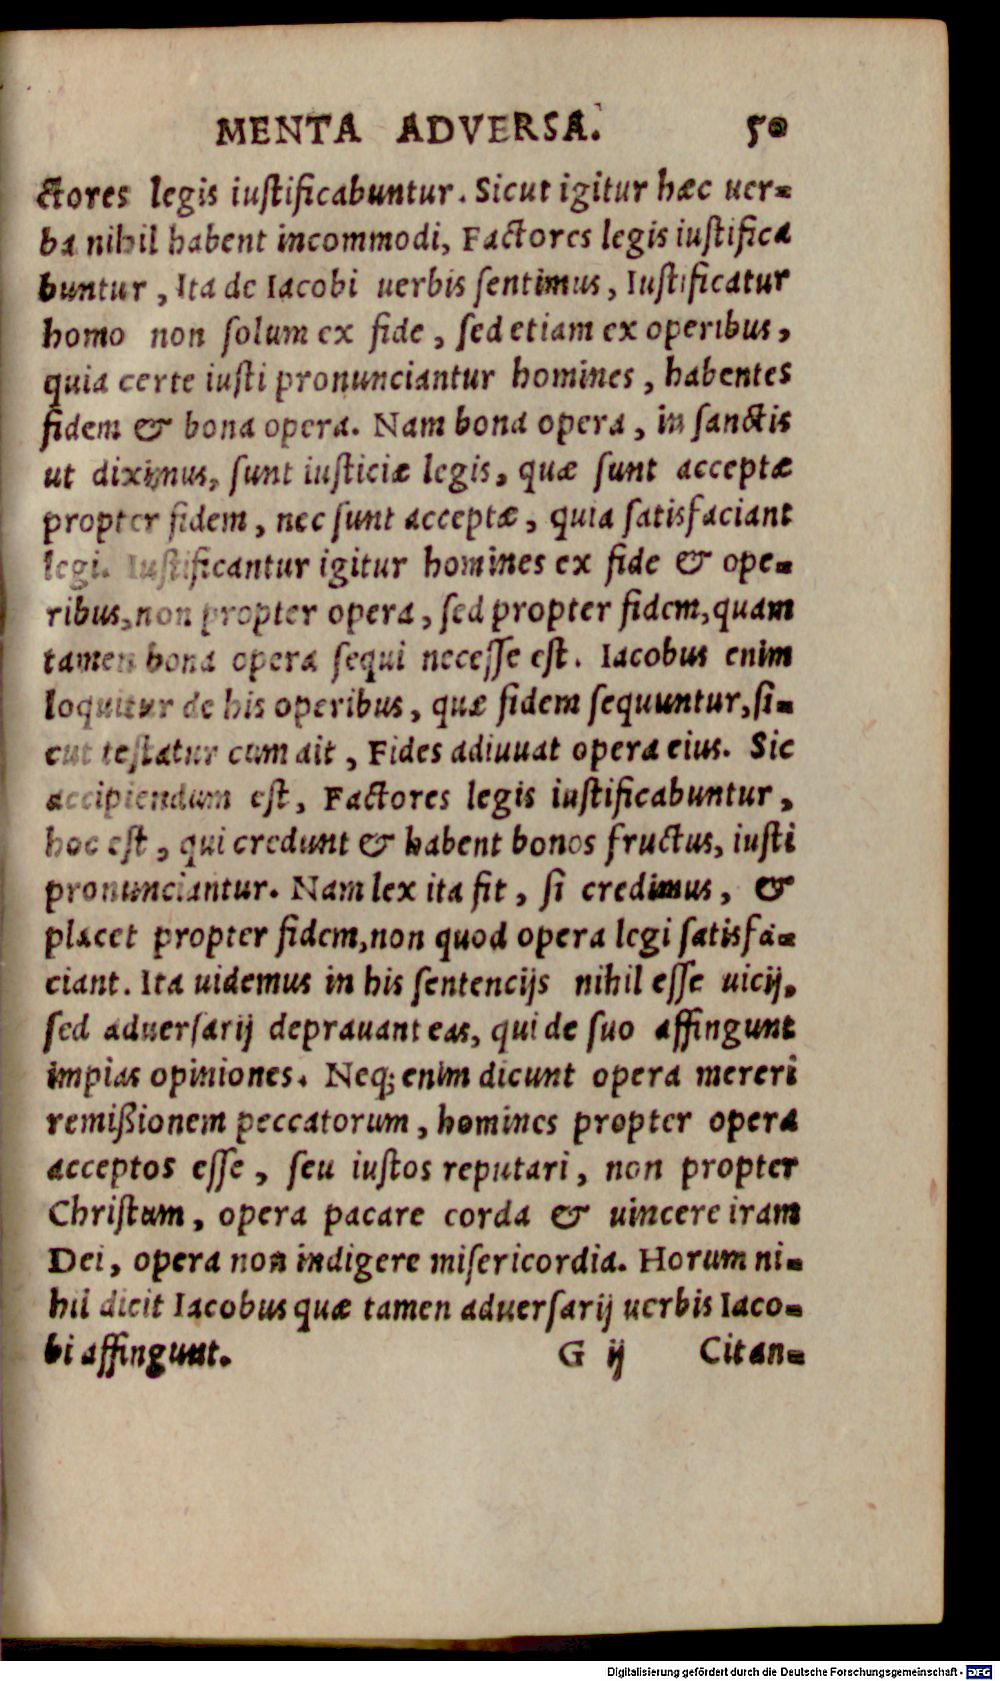 MENTA ADVERSA. 50
ctores legis iuſtificabuntur. Sicut igitur hæc uer-
ba nihil habent incommodi, Factores legis iuſtifica
buntur, Ita de Iacobi uerbis ſentimus, Iuſtificatur
homo non ſolum ex fide, ſed etiam ex operibus,
quia certe iuſti pronunciantur homines, habentes
fidem & bona opera. Nam bona opera, in ſanctis
ut diximus, ſunt iuſticiæ legis, quæ ſunt acceptæ
propter fidem, nec ſunt acceptæ, quia ſatisfaciant
legi. Iuſtificantur igitur homines ex fide & ope-
ribus, non propter opera, ſed propter fidem, quam
tamen bona opera ſequi neceſſe eſt. Iacobus enim
loquitur de his operibus, quæ fidem ſequuntur, ſi-
cut teſtatur cum ait, Fides adiuuat opera eius. Sic
accipiendum eſt, Factores legis iuſtificabuntur,
hoc eſt, qui credunt & habent bonos fructus, iuſti
pronunciantur. Nam lex ita fit, ſi credimus, &
placet propter fidem, non quod opera legi ſatisfa-
ciant. Ita uidemus in his ſentencijs nihil eſſe uicij,
ſed aduerſarij deprauant eas, qui de ſuo affingunt
impias opiniones. Neq; enim dicunt opera mereri
remißionem peccatorum, homines propter opera
acceptos eſſe, ſeu iuſtos reputari, non propter
Chriſtum, opera pacare corda & uincere iram
Dei, opera non indigere miſericordia. Horum ni-
hil dicit Iacobus quæ tamen aduerſarij uerbis Iaco-
bi affingunt. G ij Citan-
Digitalisierung gefördert durch die Deutsche Forschungsgemeinschaft - DFG